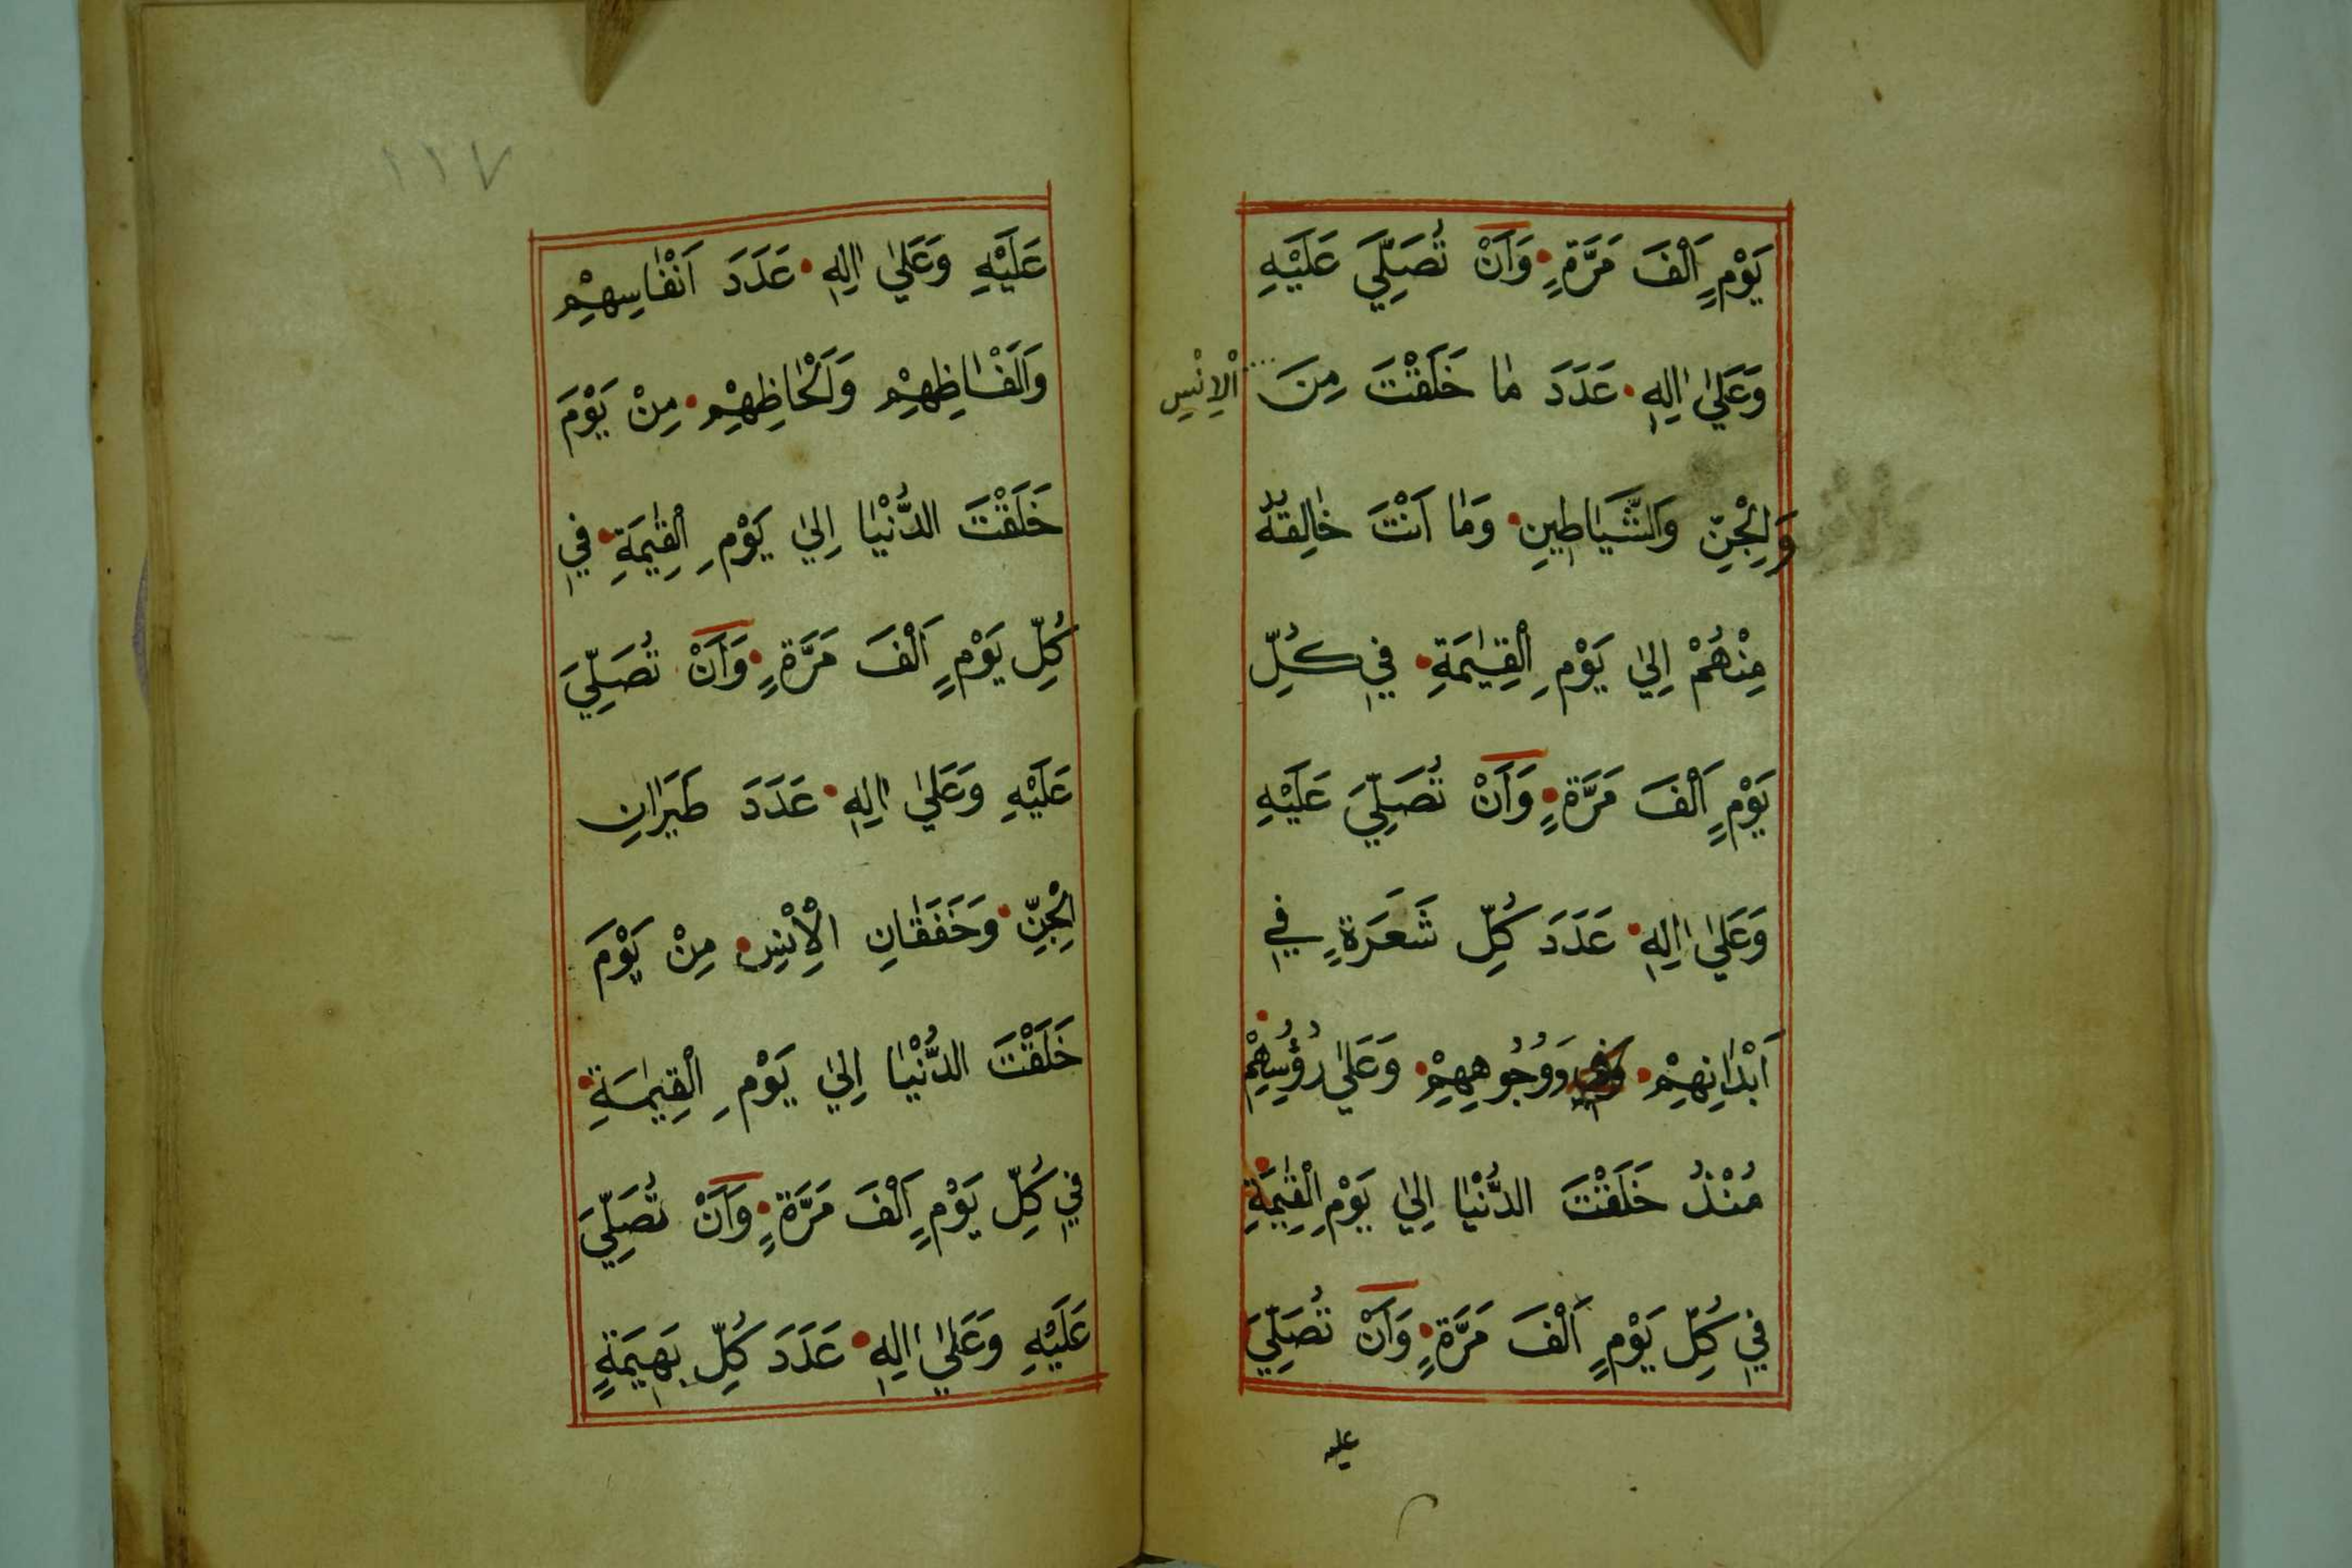 يَوْمٍ اَلْفَ مَرَّةٍ وَاَنْ تُصَلِّيَ عَلَيْهِ
وَعَلٰي اٰلِهٖ عَدَدَ مٰا خَلَقْتَ مِنَ الْاِنْسِ
وَالْجِنِّ وَالشَّيَاطِينِ وَمٰا اَنْتَ خٰالِقُهُ
مِنْهُمْ اِلٰي يَوْمِ الْقِيٰمَةِ فِي كُلِّ
يَوْمٍ اَلْفَ مَرَّةٍ وَاَنْ تُصَلِّيَ عَلَيْهِ
وَعَلٰي اٰلِهٖ عَدَدَ كُلِّ شَعَرَةٍ فِي
اَبْدٰانِهِمْ وَوُجُوهِهِمْ وَعَلٰي رُؤُسِهِمْ
مُنْذُ خَلَقْتَ الدُّنْيٰا اِلٰي يَوْمِ الْقِيٰمَةِ
فِي كُلِّ يَوْمٍ اَلْفَ مَرَّةٍ وَاَنْ تُصَلِّيَ
عليه
١١٧
عَلَيْهِ وَعَلٰي اٰلِهٖ عَدَدَ اَنْفٰاسِهِمْ
وَاَلْفٰاظِهِمْ وَاَلْحٰاظِهِمْ مِنْ يَوْمَ
خَلَقْتَ الدُّنْيٰا اِلٰي يَوْمِ الْقِيٰمَةِ فِي
كُلِّ يَوْمٍ اَلْفَ مَرَّةٍ وَاَنْ تُصَلِّيَ
عَلَيْهِ وَعَلٰي اٰلِهٖ عَدَدَ طَيَرٰانِ
الْجِنِّ وَخَفَقٰانِ الْاِنْسِ مِنْ يَوْمَ
خَلَقْتَ الدُّنْيٰا اِلٰي يَوْمِ الْقِيٰمَةِ
فِي كُلِّ يَوْمٍ اَلْفَ مَرَّةٍ وَاَنْ تُصَلِّيَ
عَلَيْهِ وَعَلٰي اٰلِهٖ عَدَدَ كُلِّ بَهِيمَةٍ